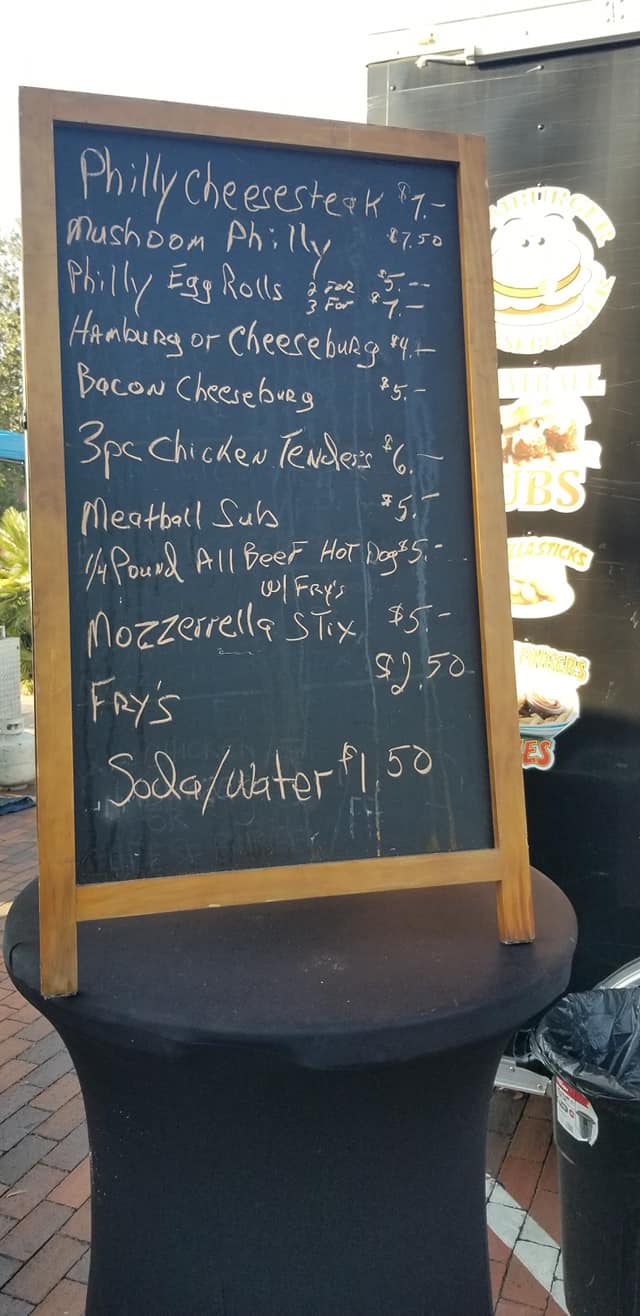 Philly Cheesesteak $7.-
Mushoom Philly $7.50
Philly Egg Rolls 2 For $5.--
3 For $7.—
Hamburg or Cheeseburg $4.-
Bacon Cheeseburg $5.-
3pc Chicken Tenders $6.—
Meatball Sub $5.-
1/4 Pound All Beef Hot Dog $5.-
w/ Fry's
Mozzerrella Stix $5-
Fry's $2.50
Soda/Water $1.50
HAMBURGER
UBS
ES